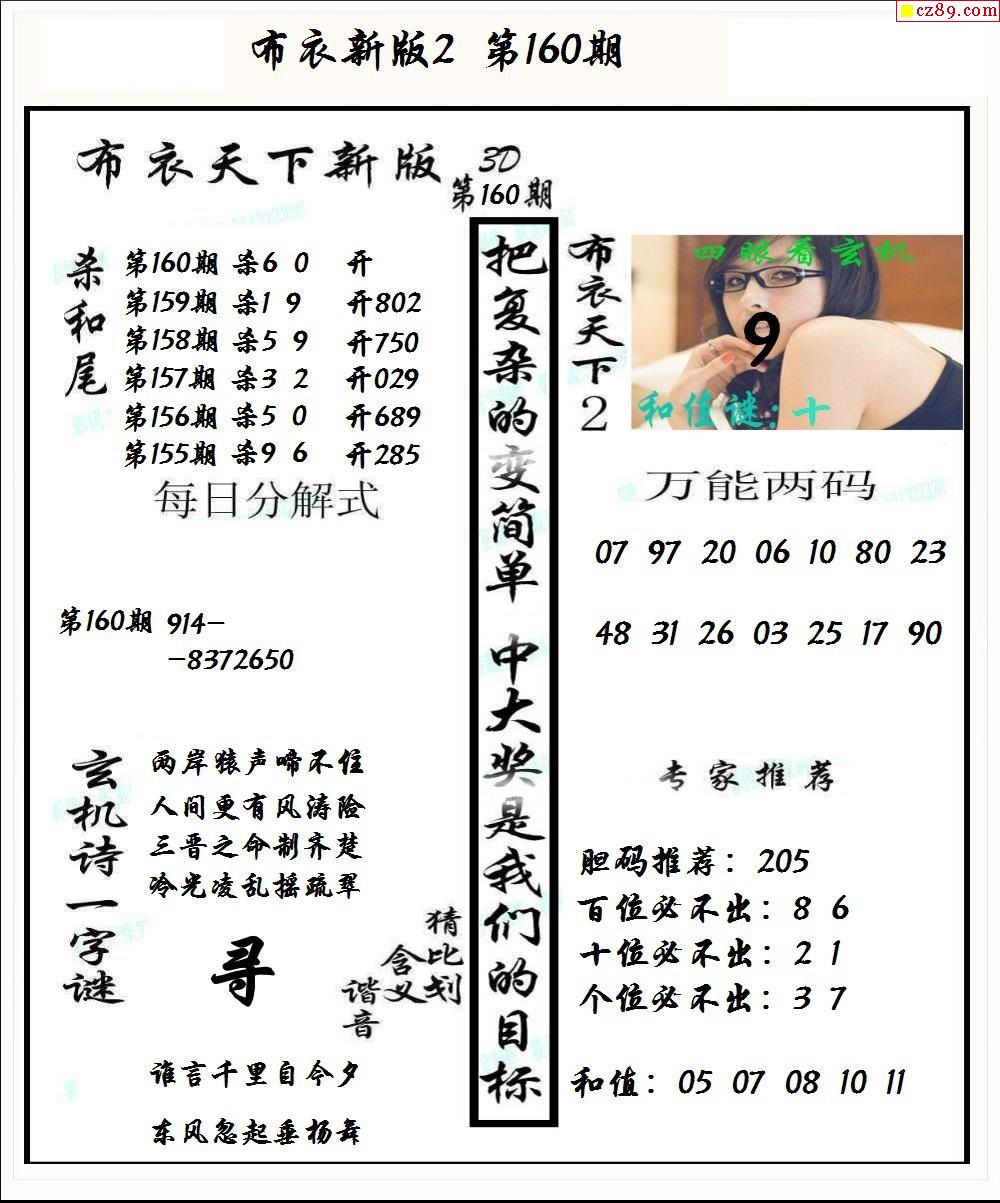 cz89.com
布衣新版2 第160期
布衣天下新版
3D
第160期
杀和尾
第160期 杀6 0 开
第159期 杀1 9 开802
第158期 杀5 9 开750
第157期 杀3 2 开029
第156期 杀5 0 开689
第155期 杀9 6 开285
每日分解式
第160期 914-
-8372650
玄机诗一字谜
两岸猿声啼不住
人间更有风涛险
三晋之命制齐楚
冷光凌乱摇疏翠
寻
猜比划
含义
谐音
谁言千里自今夕
东风忽起垂杨舞
把复杂的变简单 中大奖是我们的目标
布衣天下2
四眼看玄机
9
和值谜:十
万能两码
07 97 20 06 10 80 23
48 31 26 03 25 17 90
专家推荐
胆码推荐：205
百位必不出：8 6
十位必不出：2 1
个位必不出：3 7
和值：05 07 08 10 11